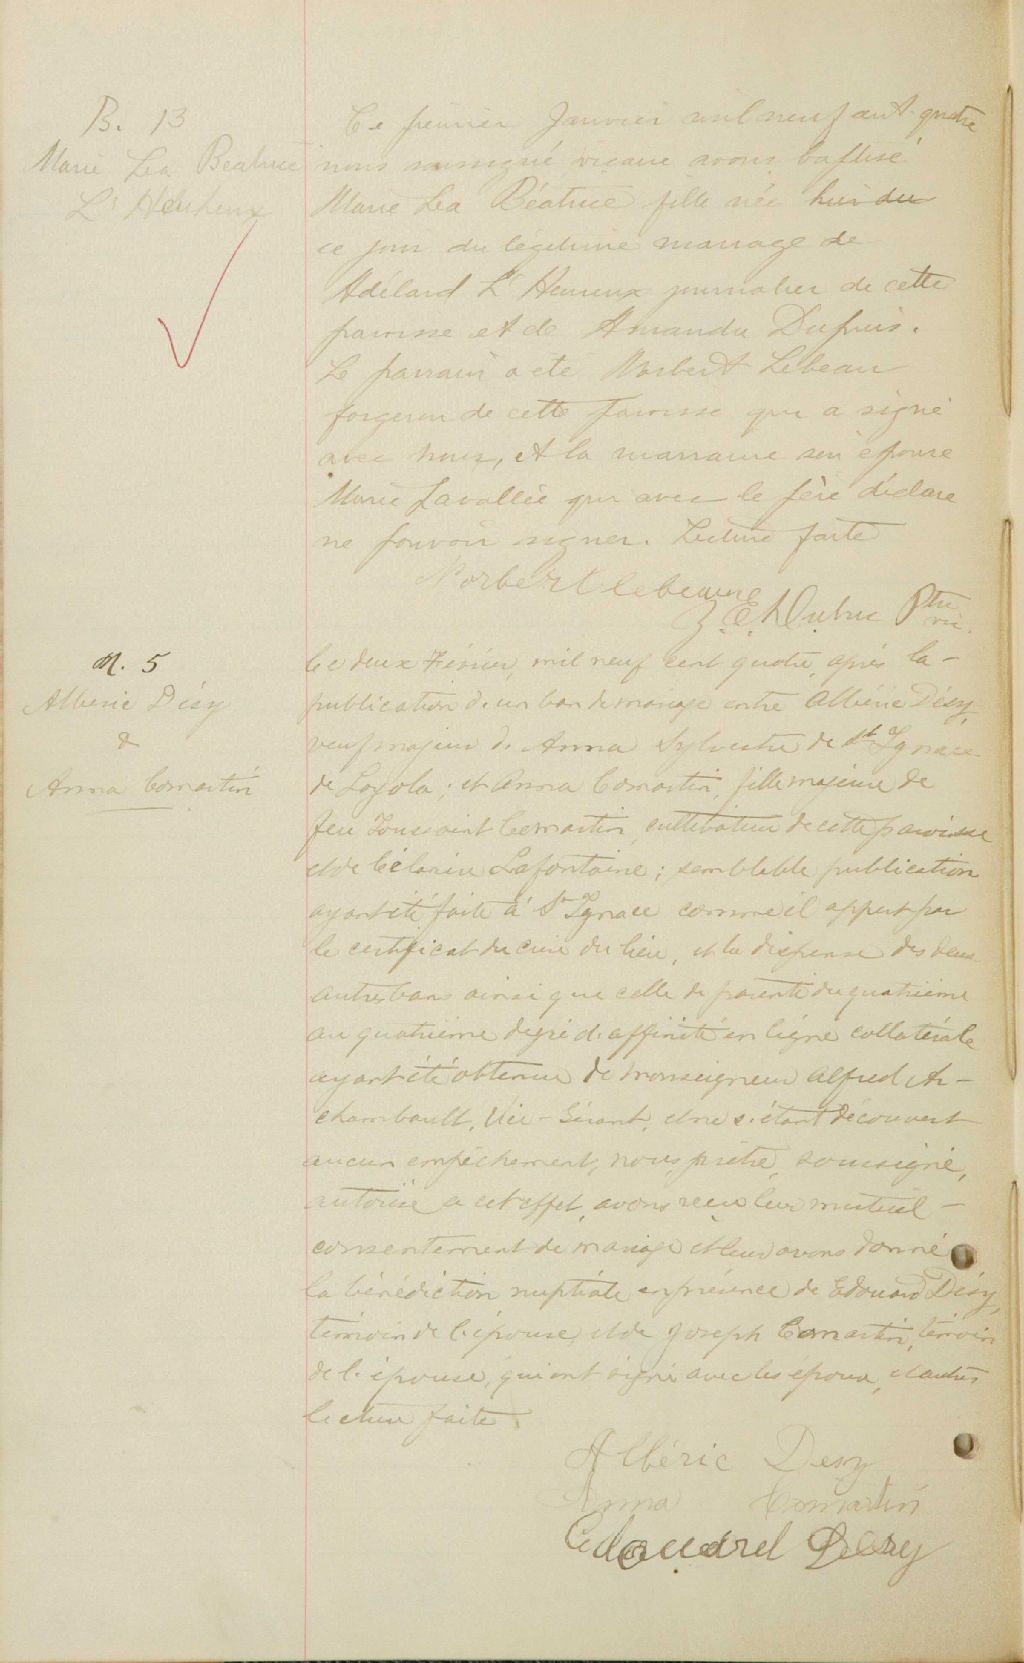 B. 13
Marie Lea Beatrice
L'Heureux
Ce premier Janvier mil neuf cent quatre
nous soussigné vicaire avons baptisé
Marie Lea Béatrice fille née hier du
ce jour du légitime mariage de
Adélard L'Heureux journalier de cette
paroisse et de Amanda Dupuis.
Le parrain a été Norbert Lebeau
forgeron de cette paroisse qui a signé
avec nous, et la marraine son épouse
Marie Lavallée qui avec le père déclare
ne pouvoir signer. Lecture faite
Norbert lebeau
Z. E. Dubuc Ptre
vic.
M. 5
Albéric Désy
&
Anna Comartin
Le deux Février, mil neuf cent quatre, après la-
publication d'un ban de mariage entre Albéric Désy,
veuf majeur de Anna Sylvestre de St Ignace
de Loyola; et Anna Comartin, fille majeure de
feu Toussaint Comartin, cultivateur de cette paroisse
et de Célanire Lafontaine; semblable publication
ayant été faite à St Ignace comme il appert par
le certificat du curé du lieu, et la dispense des deux
autres bans ainsi que celle de parenté du quatrième
au quatrième degré d'affinité en ligne collatérale
ayant été obtenue de Monseigneur Alfred Ar-
chambault, Vic-Gérant, et ne s'étant découvert
aucun empêchement, nous prêtre, soussigné,
autorisé à cet effet, avons reçu leur mutuel-
consentement de mariage et leur avons donné
la bénédiction nuptiale en présence de Edouard Désy,
témoin de l'épouse, et de Joseph Comartin, témoin
de l'épouse, qui ont signé avec les époux, et autres
lecture faite.
Albéric Desy
Anna Comartin
Edouard Desy